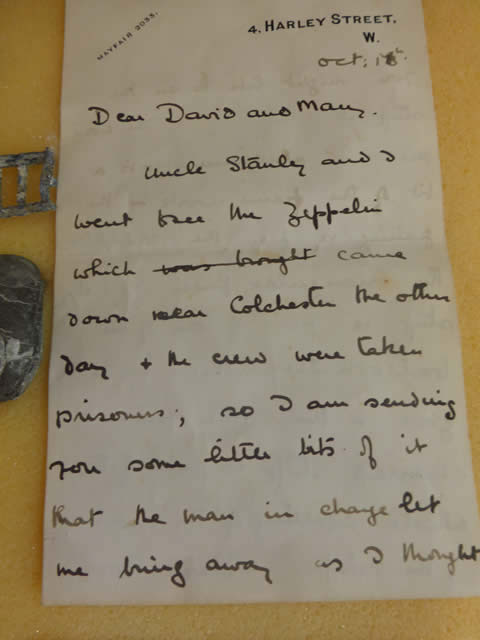 MAYFAIR 2055.
4, HARLEY STREET,
W.
Oct. 18th
Dear David and Mary.
Uncle Stanley and I
went to see the Zeppelin
which was brought came
down near Colchester the other
day + the crew were taken
prisoners; so I am sending
you some little bits of it
that the man in charge let
me bring away as I thought